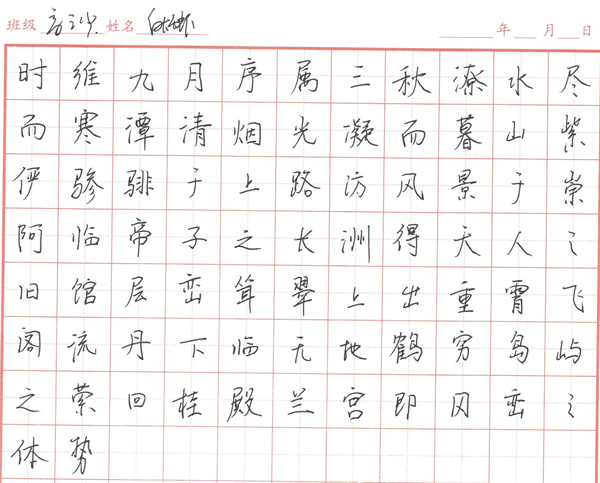 班级 姓名 年 月 日
时维九月序属三秋潦水尽
而寒潭清烟光凝而暮山紫
俨骖𬴂于上路访风景于崇
阿临帝子之长洲得天人之
旧馆层峦耸翠上出重霄飞
阁流丹下临无地鹤穷岛屿
之萦回桂殿兰宫即冈峦之
体势